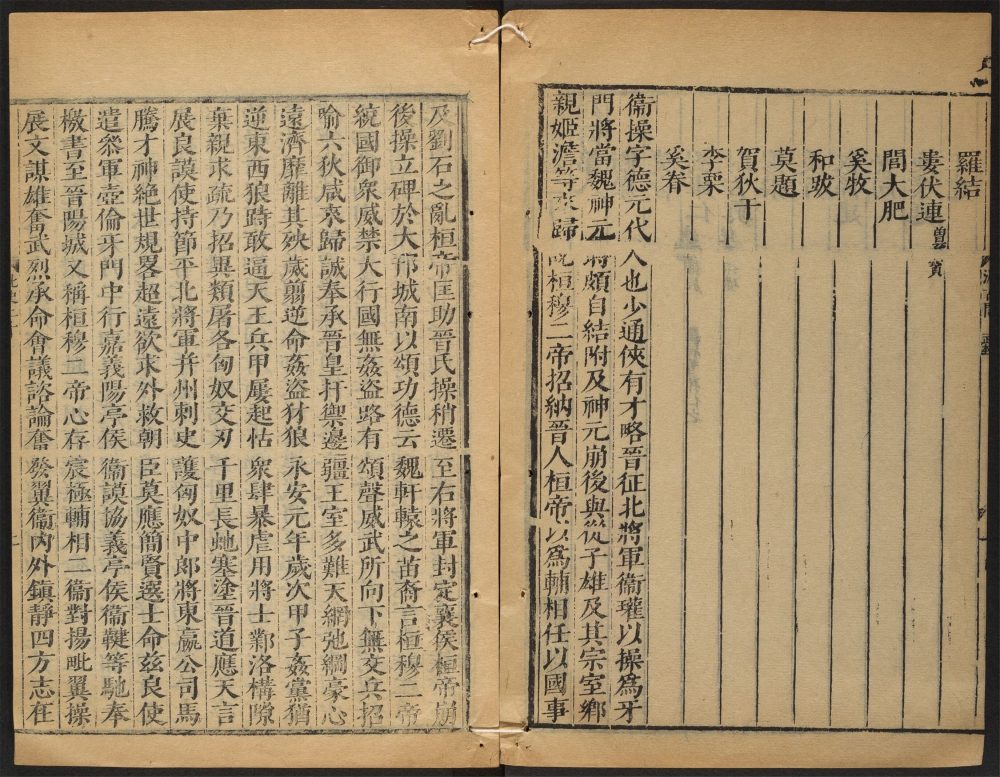 羅結
婁伏連 曾孫寶
閭大肥
奚牧
和跋
莫題
賀狄干
李栗
奚眷
衞操字德元代人也少通俠有才略晉征北將軍衞瓘以操爲牙
門將當魏神元時頗自結附及神元崩後與從子雄及其宗室鄉
親姬澹等來歸說桓穆二帝招納晉人桓帝以爲輔相任以國事
及劉石之亂桓帝匡助晉氏操稍遷至右將軍封定襄侯桓帝崩
後操立碑於大邗城南以頌功德云魏軒轅之苗裔言桓穆二帝
統國御衆威禁大行國無姦盜路有頌聲威武所向下無交兵招
喻六狄咸來歸誠奉承晉皇扞禦邊疆王室多難天網弛綱豪心
遠濟靡離其殃歲翦逆命姦盜豺狼永安元年歲次甲子姦黨猶
逆東西狼跱敢逼天王兵甲屢起怙衆肆暴虐用將士鄴洛構隙
棄親求疏乃招異類屠各匈奴交刃千里長虵塞塗晉道應天言
展良謨使持節平北將軍幷州刺史護匈奴中郎將東嬴公司馬
騰才神絕世規畧超遠欲求外救朝臣莫應簡賢選士命茲良使
遣叅軍壺倫牙門中行嘉義陽亭侯衞謨協義亭侯衞鞬等馳奉
檄書至晉陽城又稱桓穆二帝心存宸極輔相二衞對揚毗翼操
展文謀雄奮武烈承命會議諮論奮發翼衞內外鎮靜四方志在